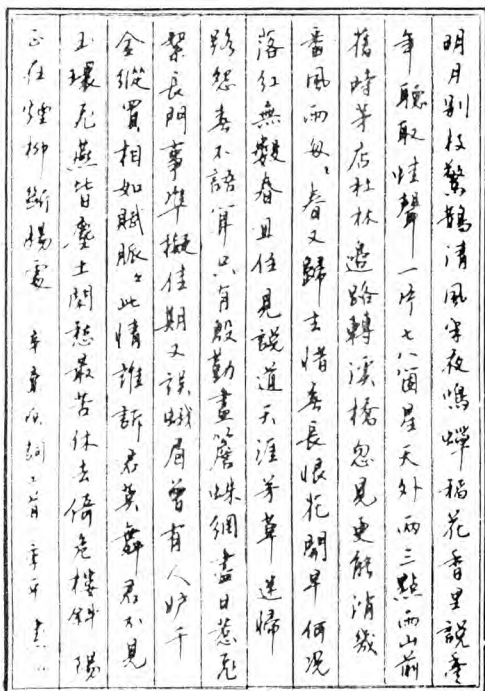 明月别枝驚鵲清風半夜鳴蟬稻花香里説豐
年聽取蛙聲一片七八箇星天外兩三點雨山前
舊時茅店社林邊路轉溪橋忽見更能消幾
番風雨匆々春又歸去惜春長恨花開早何況
落紅無數春且住見説道天涯芳草迷歸
路怨春不語算只有殷勤畫簷蛛網盡日惹飛
絮長門事準擬佳期又誤蛾眉曾有人妒千
金縱買相如賦脈々此情誰訴君莫舞君不見
玉環飛燕皆塵土閑愁最苦休去倚危樓斜陽
正在煙柳斷腸處 辛棄疾詞二首